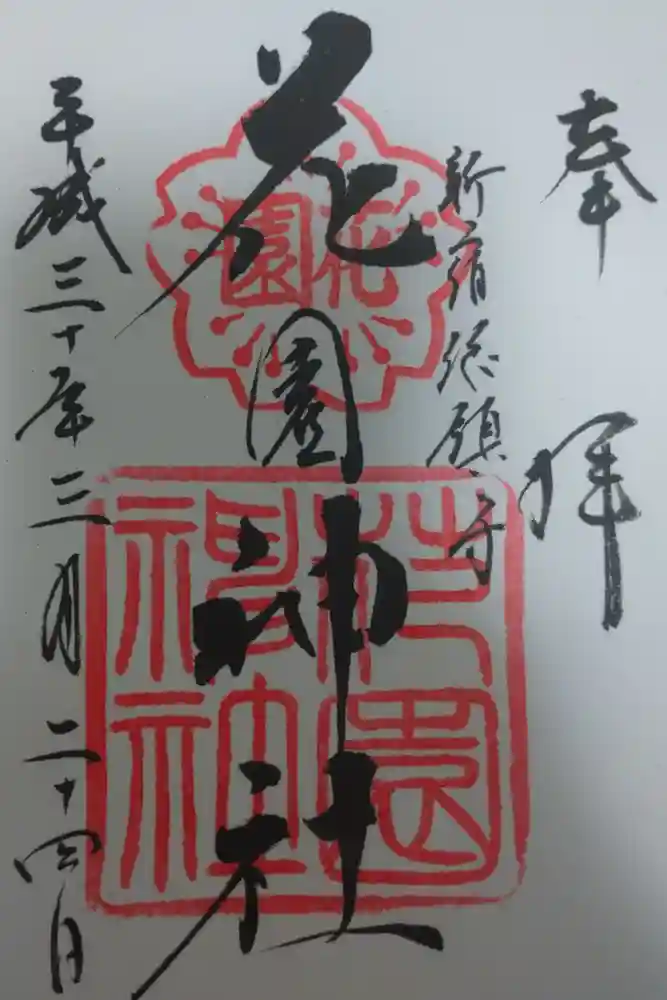 奉拝
新宿総願寺
花園神社
平成三十年三月二十四日
花園
花園神社